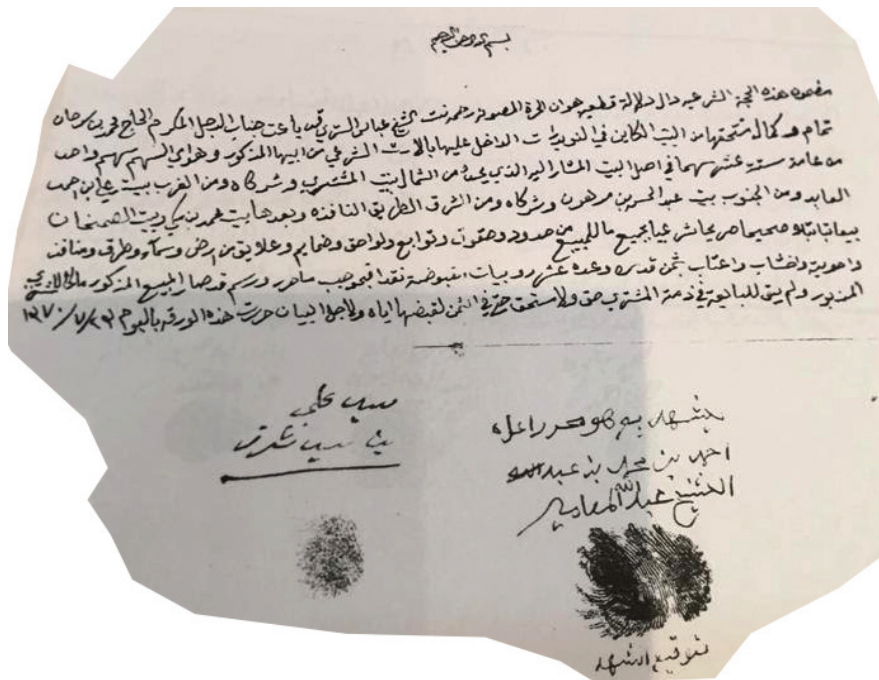 بسم الله الرحمن الرحيم
مضمون هذه الحجة الشرعيه دال دلالة قطعيه هو ان الحرة المصونه رحمه بنت الشيخ عباس الستري قد باعت جناب الرجل المكرم الحاج محمد بن سرحان
تمام وكمال مستحقها من البيت الكاين في النويدرات الداخل عليها بالارث الشرعي من ابيها المذكور وهو اي السهم سهم واحد
من عامة ستة عشر سهما في اصل البيت المشار اليه الذي يحده من الشمال بيت المشتري وشركاه ومن الغرب بيت علي ابن احمد
العابد ومن الجنوب بيت عبد الحسين بن مرهون وشركاه ومن الشرق الطريق النافذه وبعدها بيت محمد بن مكي وبيت
بيعا باتا بتلا صحيحا صريحا شرعيا بجميع ما للمبيع من حدود وحقوق وتوابع ولواحق وضمايم وعلايق من ارض وسمآء وطرق ومنافت
واهوية واخشاب واعتاب بثمن قدره وعده عشر روبيات مقبوضة نقدا فبموجب ما حرر ورسم قد صار المبيع المذكور ملكا للمشتري
المزبور ولم يبق للبايعه في ذمة المشتري حق ولا مستحق حتى في الثمن لقبضها اياه ولاجل البيان حررت هذه الورقه باليوم ٢٣/٧/١٣٧٠
يشهد بم هو محرر اعلاه
احمد بن محمد بن عبد الله
الشيخ عبد الله المعاميري
سيد علي
بن سيد شرف
توقيع الشهد